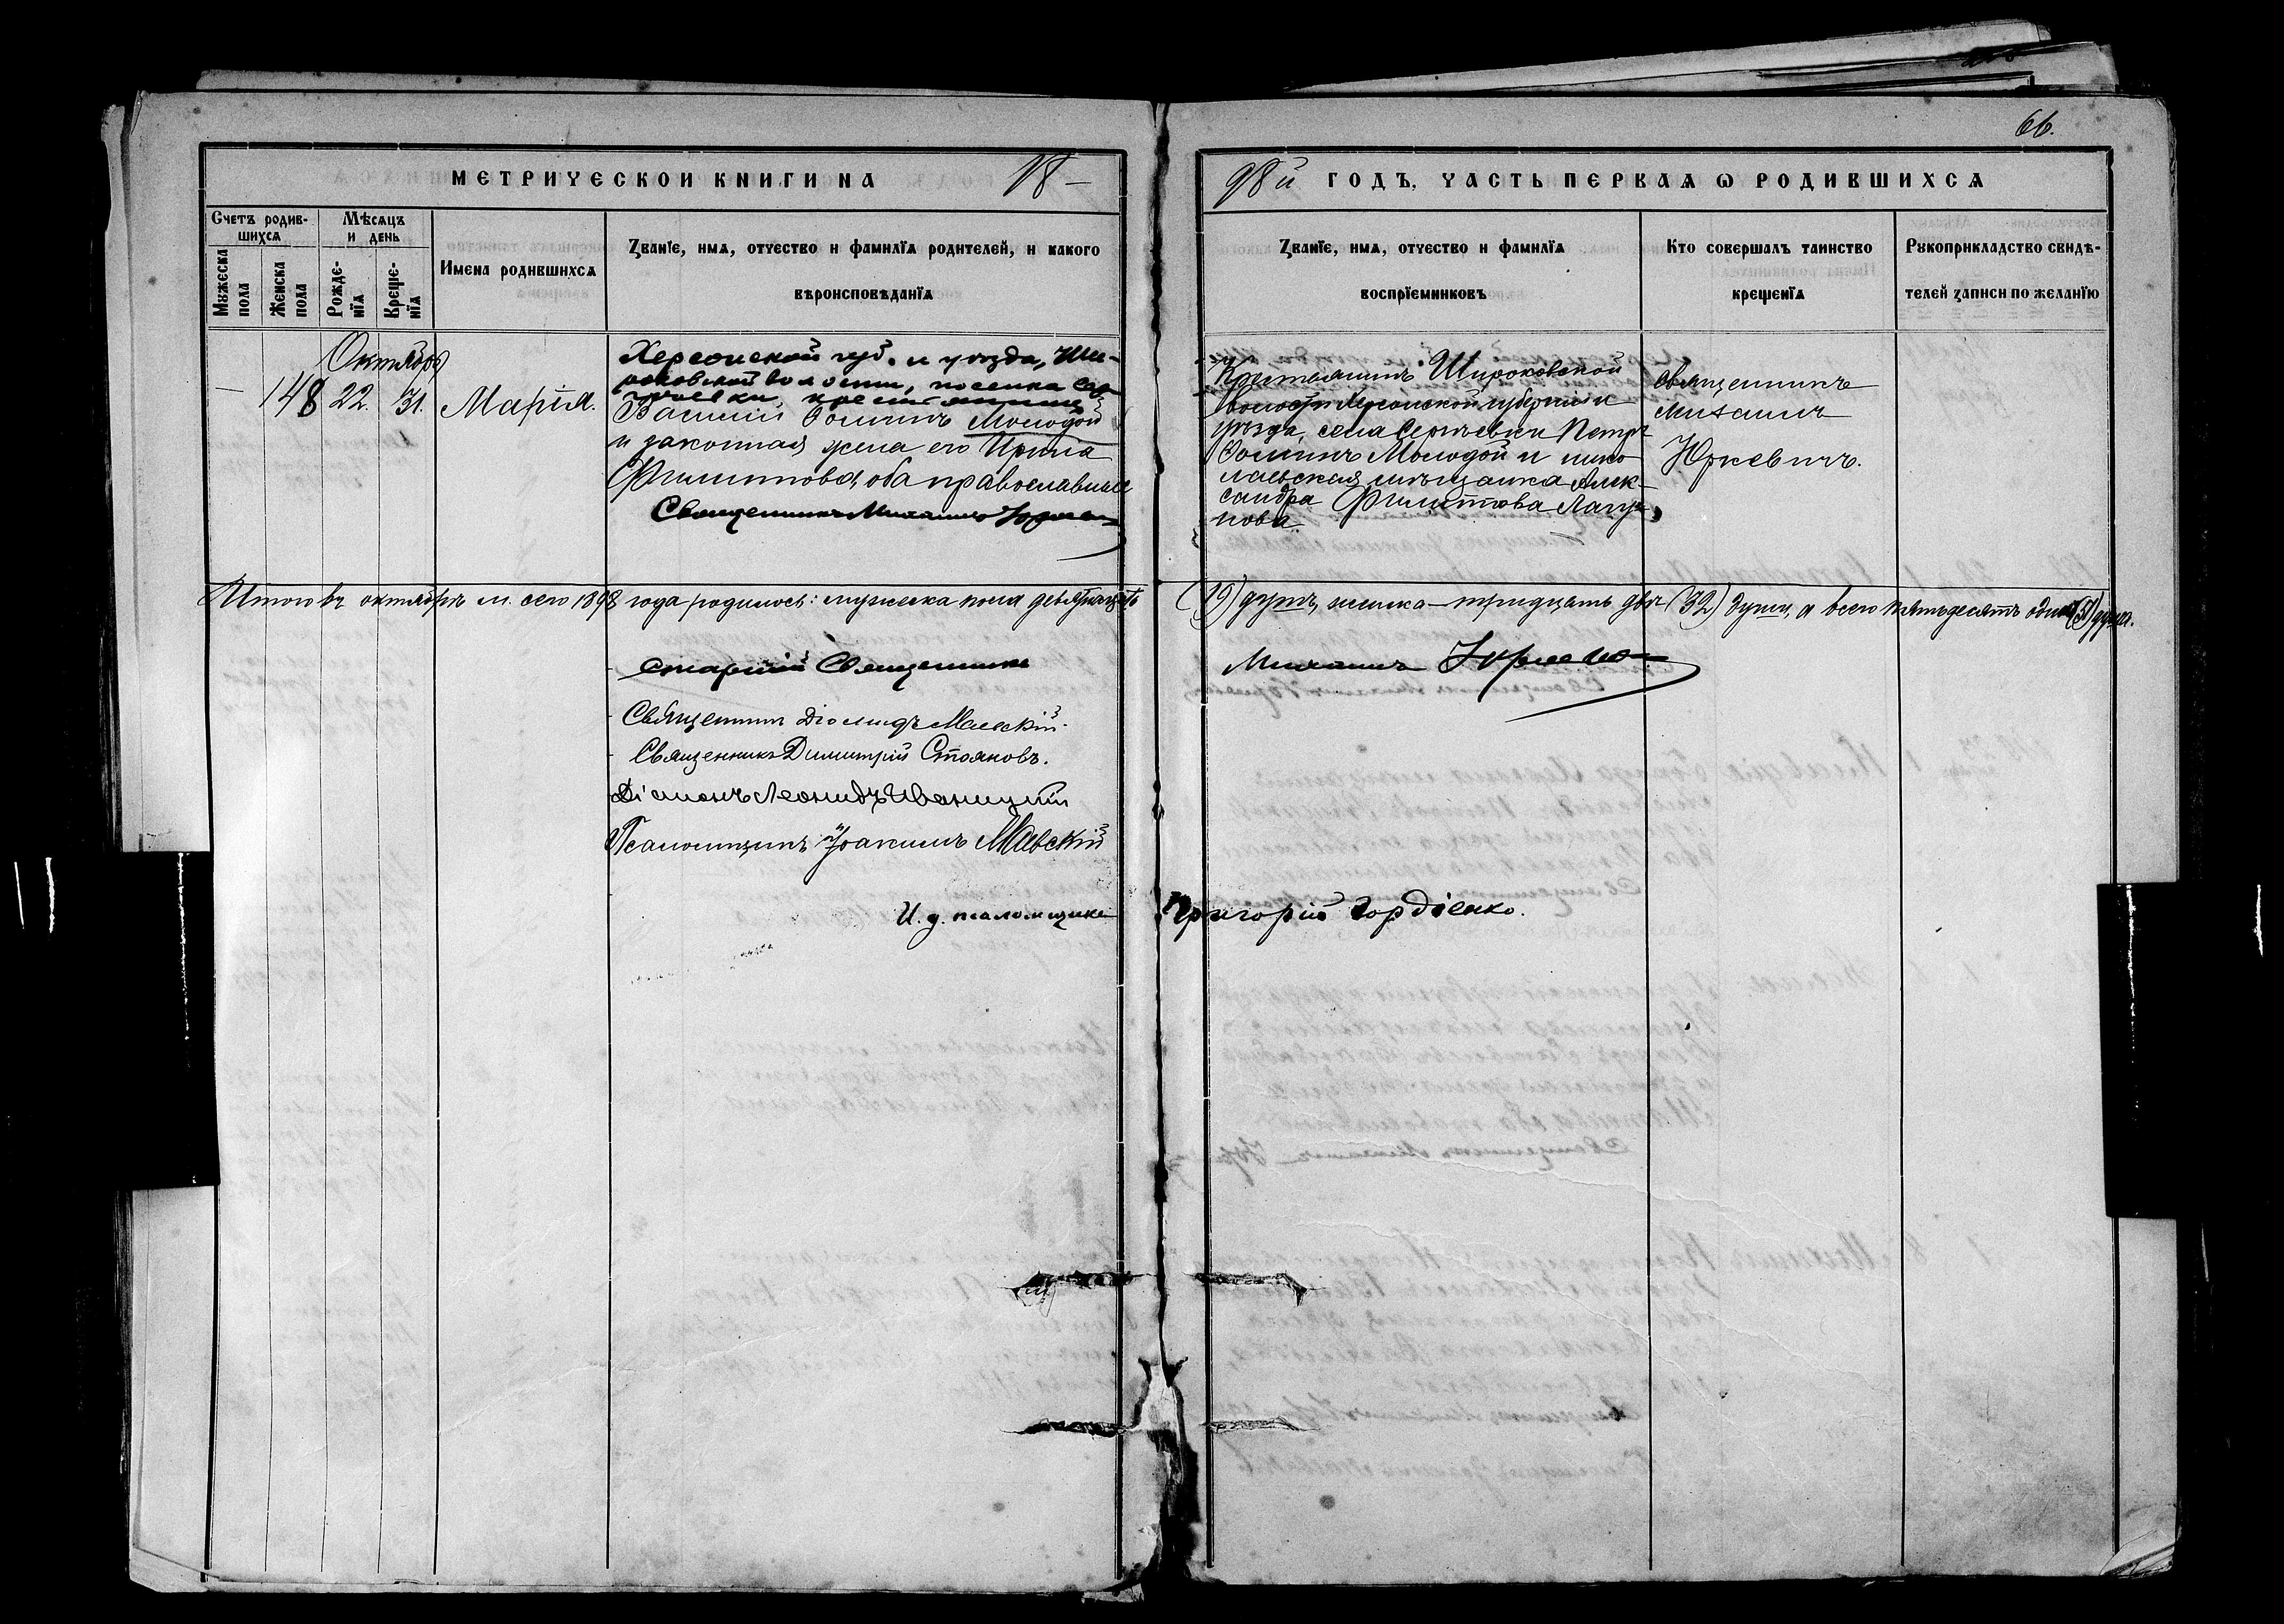 66.
МЕТРИЧЕСКОЙ КНИГИ НА 18—
98й ГОДЪ, ЧАСТЬ ПЕРВАЯ Ѡ РОДИВШИХСЯ
Счетъ родив-
шихся
Мужеска
пола
Женска
пола
Мѣсяцъ
и день
Рожде-
нїя
Креще-
нїя
Имена родившихся
Званїе, имя, отчество и фамилїя родителей, и какого
вѣроисповѣданїя
Званїе, имя, отчество и фамилїя
воспрїемниковъ
Кто совершалъ таинство
крещенїя
Рукоприкладство свидѣ-
телей записи по желанїю
Октябрь
— 148 22. 31. Марія.
Херсонской губ. и уѣзда, Ши-
роковской волости, поселка Сер-
гѣевки, крестьянинъ
Василій Фоминъ Молодой
и законная жена его Ирина
Филиппова, оба православные
Священникъ Михаилъ Юркевичъ
Крестьянинъ Широковской
волости Херсонской губерніи и
уѣзда, села Сергѣевки Петръ
Фоминъ Молодой и нико-
лаевская мѣщанка Алек-
сандра Филиппова Лагу-
нова.
Священникъ
Михаилъ
Юркевичъ.
Итого въ октябрѣ м. сего 1898 года родилось: мужеска пола девятнадцать (19) душъ, женска — тридцать двѣ (32) души, а всего пятьдесятъ одна (51) душа.
Старшій Священникъ Михаилъ Юркевичъ
Священникъ Діомидъ Маевскій.
Священникъ Димитрій Стояновъ.
Діаконъ Леонидъ Иваницкій
Псаломщикъ Іоакимъ Маевскій
И. д. псаломщика Григорій Гордіенко.